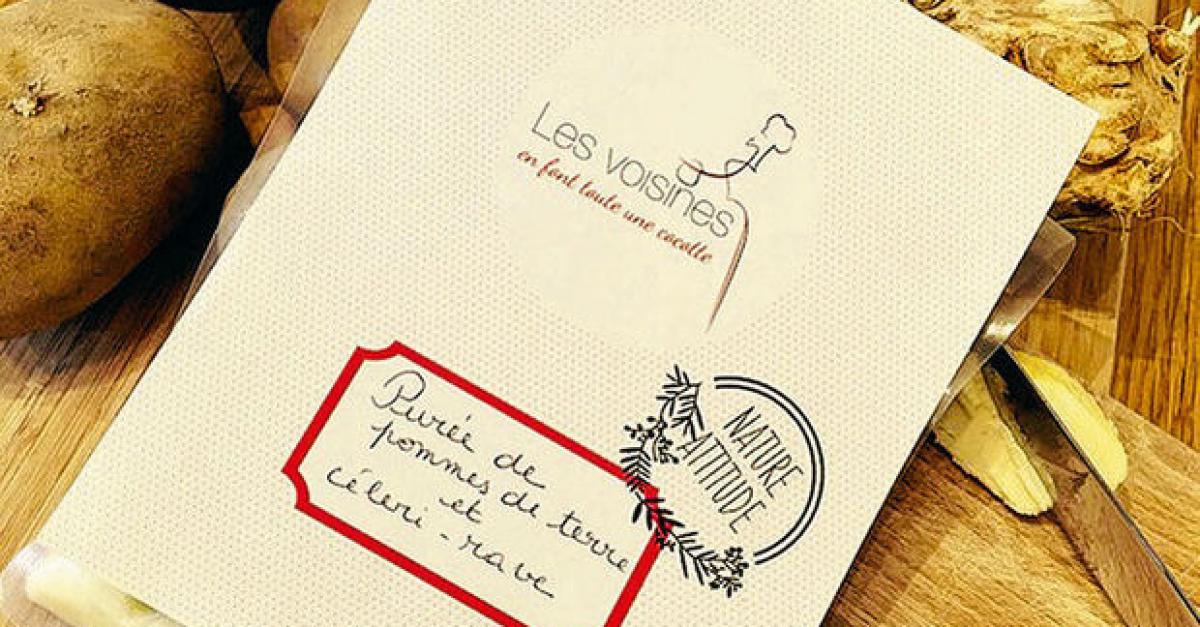 Les voisines
en font toute une cocotte
NATURE
ATTITUDE
Purée de
pommes de terre
et
céleri-rave